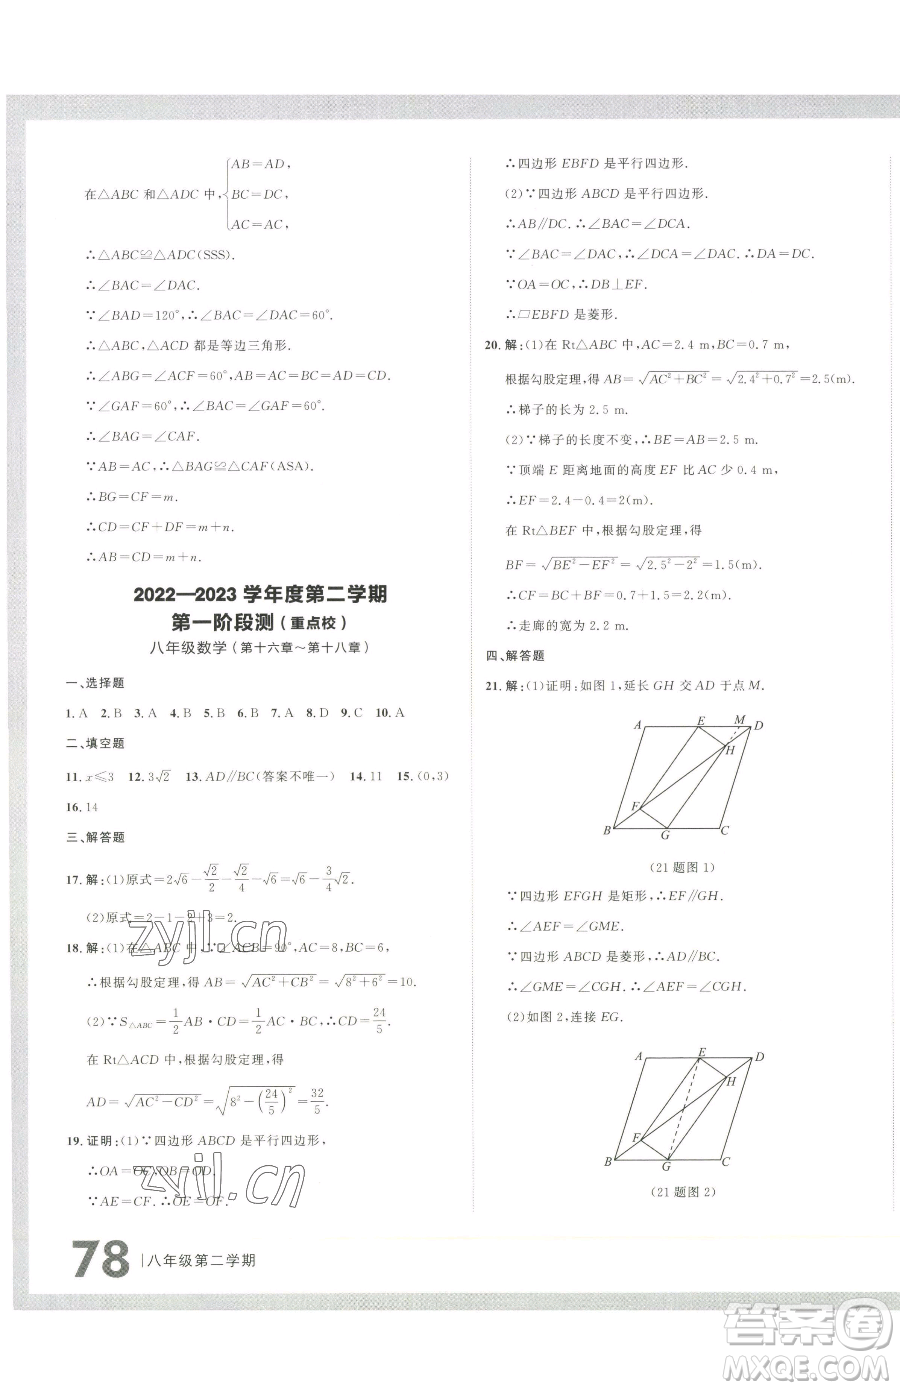 在△ABC 和△ADC 中,
AB=AD,
BC=DC,
AC=AC,
∴△ABC≌△ADC(SSS).
∴∠BAC=∠DAC.
∵∠BAD=120°,∴∠BAC=∠DAC=60°.
∴△ABC,△ACD 都是等边三角形.
∴∠ABG=∠ACF=60°,AB=AC=BC=AD=CD.
∵∠GAF=60°,∴∠BAC=∠GAF=60°.
∴∠BAG=∠CAF.
∵AB=AC,∴△BAG≌△CAF(ASA).
∴BG=CF=m.
∴CD=CF+DF=m+n.
∴AB=CD=m+n.
2022—2023 学年度第二学期
第一阶段测(重点校)
八年级数学(第十六章~第十八章)
一、选择题
1. A 2. B 3. A 4. B 5. B 6. B 7. A 8. D 9. C 10. A
二、填空题
11. x≤3 12. 3√2 13. AD∥BC(答案不唯一) 14. 11 15. (0,3)
16. 14
三、解答题
17. 解:(1)原式=2√6-√2/2-√2/4-√6=√6-3/4√2.
(2)原式=2-1-2+3=2.
18. 解:(1)在△ABC 中,∵∠ACB=90°,AC=8,BC=6,
∴根据勾股定理,得 AB=√(AC²+CB²)=√(8²+6²)=10.
(2)∵S△ABC=1/2AB·CD=1/2AC·BC,∴CD=24/5.
在 Rt△ACD 中,根据勾股定理,得
AD=√(AC²-CD²)=√(8²-(24/5)²)=32/5.
19. 证明:(1)∵四边形 ABCD 是平行四边形,
∴OA=OC,OB=OD.
∵AE=CF.∴OE=OF.
78 八年级第二学期
∴四边形 EBFD 是平行四边形.
(2)∵四边形 ABCD 是平行四边形.
∴AB∥DC.∴∠BAC=∠DCA.
∵∠BAC=∠DAC,∴∠DCA=∠DAC.∴DA=DC.
∵OA=OC,∴DB⊥EF.
∴□EBFD 是菱形.
20. 解:(1)在 Rt△ABC 中,AC=2.4 m,BC=0.7 m,
根据勾股定理,得 AB=√(AC²+BC²)=√(2.4²+0.7²)=2.5(m).
∴梯子的长为 2.5 m.
(2)∵梯子的长度不变,∴BE=AB=2.5 m.
∵顶端 E 距离地面的高度 EF 比 AC 少 0.4 m,
∴EF=2.4-0.4=2(m).
在 Rt△BEF 中,根据勾股定理,得
BF=√(BE²-EF²)=√(2.5²-2²)=1.5(m).
∴CF=BC+BF=0.7+1.5=2.2(m).
∴走廊的宽为 2.2 m.
四、解答题
21. 解:(1)证明:如图 1,延长 GH 交 AD 于点 M.
A E M D
H
F
B G C
(21 题图 1)
∵四边形 EFGH 是矩形,∴EF∥GH.
∴∠AEF=∠GME.
∵四边形 ABCD 是菱形,∴AD∥BC.
∴∠GME=∠CGH.∴∠AEF=∠CGH.
(2)如图 2,连接 EG.
A E D
H
F
B G C
(21 题图 2)
zyjl.cn
zyjl.cn
答案圈
MXQE.COM